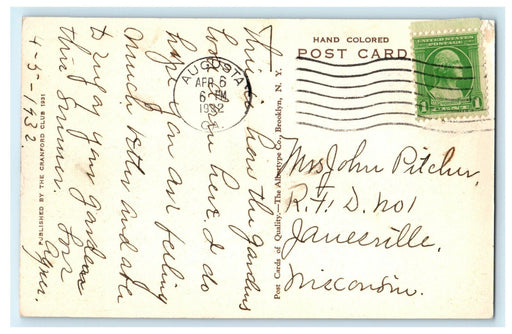 HAND COLORED
POST CARD
UNITED STATES POSTAGE
1
AUGUSTA
APR 6
6 PM
1932
This is how the gardens
look down here. I do
hope you are feeling
much better and able
to enjoy your gardens
this summer. Love
Agnes.
4-5-1932.
Mrs John Pitcher,
R.F.D. No 1
Janesville,
Wisconsin.
Post Cards of Quality.—The Albertype Co., Brooklyn, N. Y.
PUBLISHED BY THE CRANFORD CLUB 1931